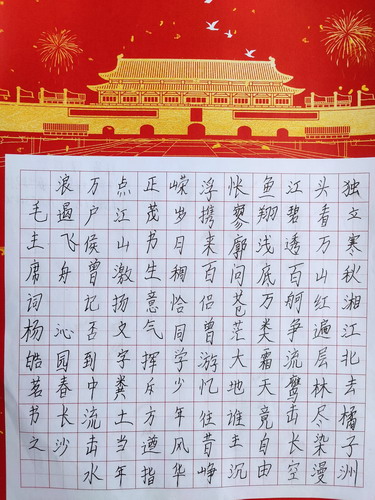 独立寒秋湘江北去橘子洲
头看万山红遍层林尽染漫
江碧透百舸争流鹰击长空
鱼翔浅底万类霜天竞自由
怅寥廓问苍茫大地谁主沉
浮携来百侣曾游忆往昔峥
嵘岁月稠恰同学少年风华
正茂书生意气挥斥方遒指
点江山激扬文字粪土当年
万户侯曾记否到中流击水
浪遏飞舟 沁园春长沙
毛主席词杨皓茗书之